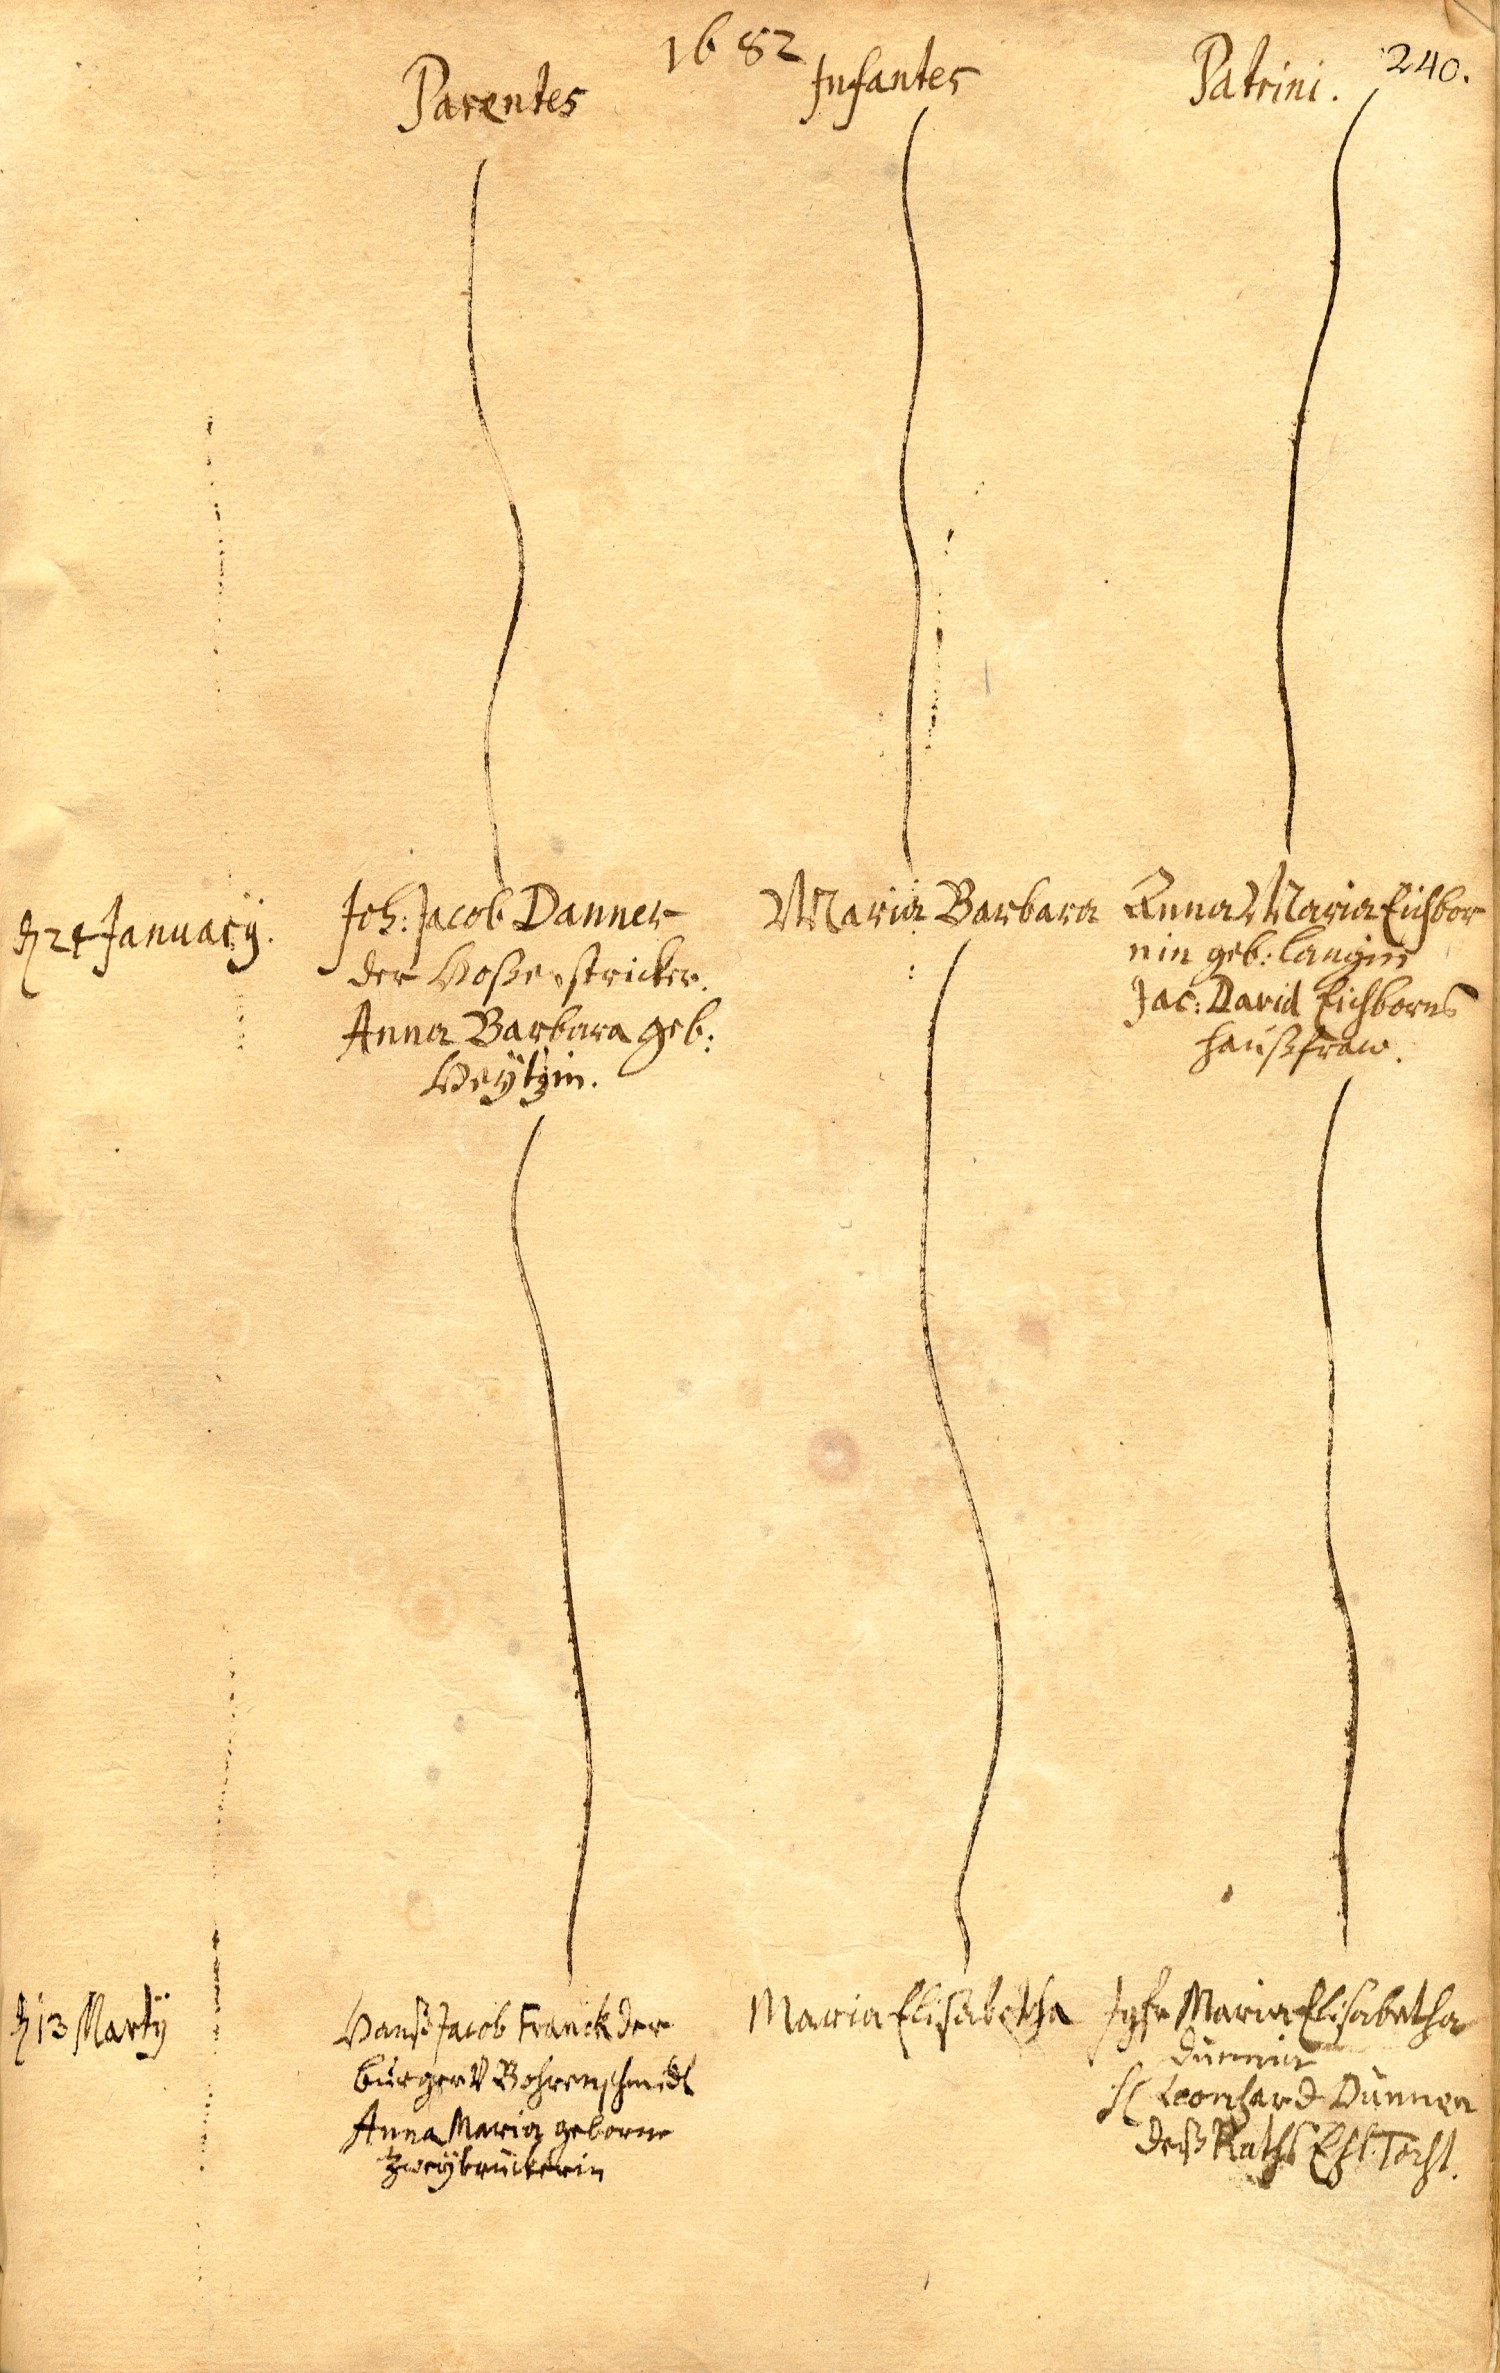 1682
240.
Parentes
Infantes
Patrini.
24 January.
Joh: Jacob Danner
der Hoßenstricker.
Anna Barbara geb:
Weÿtzin.
Maria Barbara
Anna Maria Eichbor
nin geb: Langin
Jac: David Eichborns
haußfraw.
13 Martÿ
Hanß Jacob Franck der
burger Bohrenschmidt
Anna Maria geborne
Zweÿbrückerin
Maria Elisabetha
Jgfr Maria Elisabetha
Dünnin
H Leonhard Dünnen
deß Raths Ehl. Tocht.